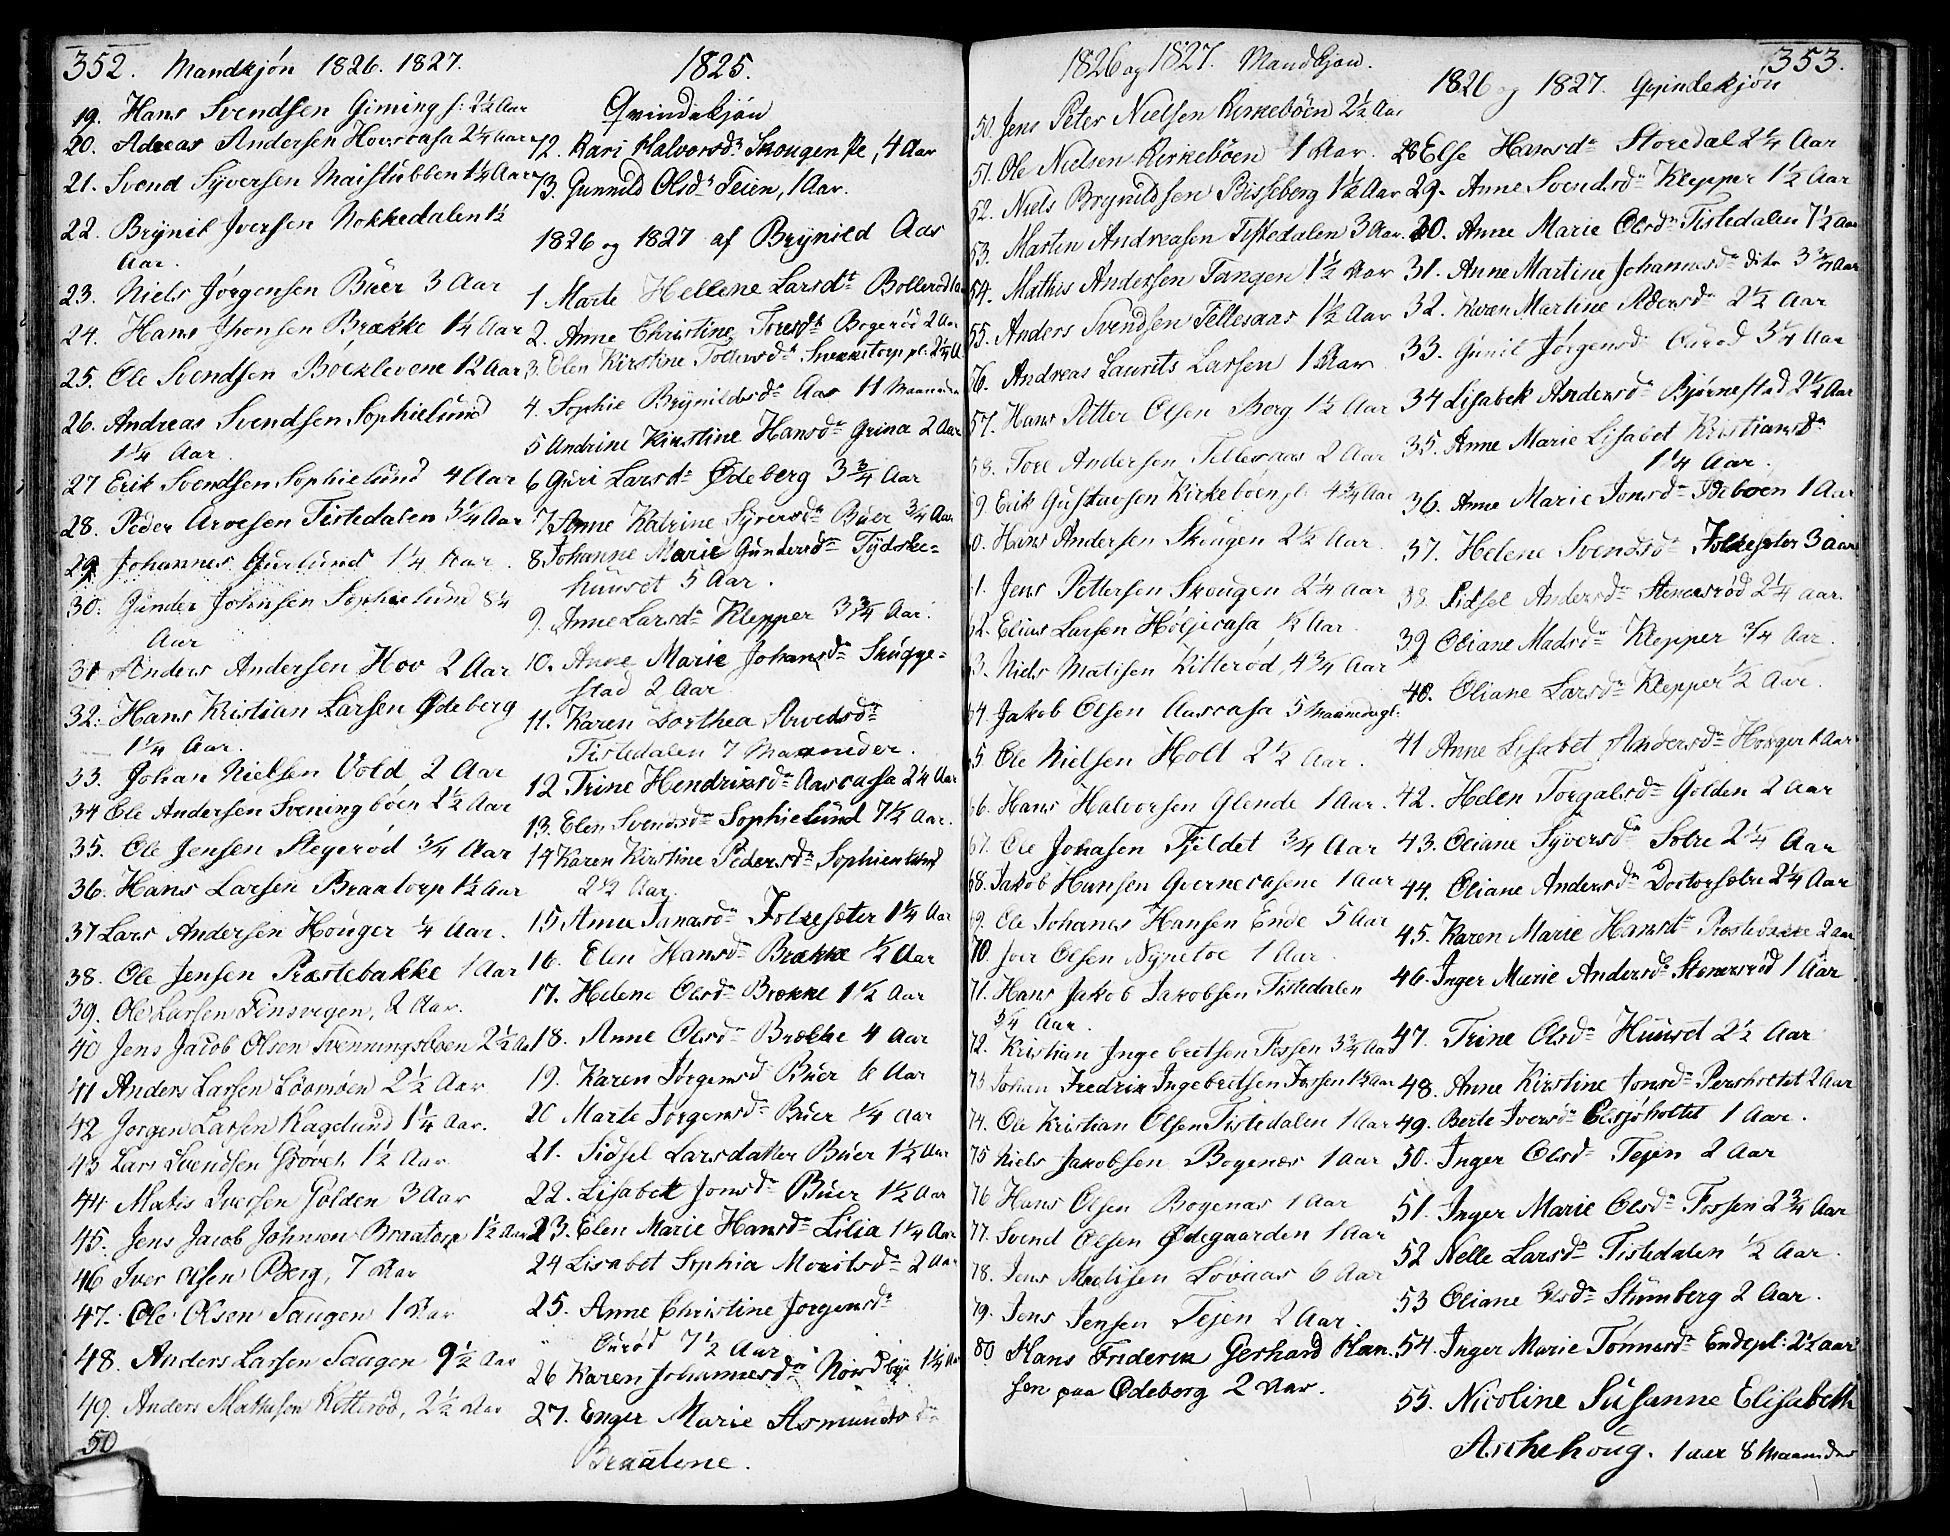 352. Mandkjøn 1826. 1827.
19. Hans Svendsen Giming 2½ Aar
20. Adreas Andersen Hovscasa 2¼ Aar
21. Svend Syversen Maistubben 1¼ Aar
22. Brynil Iversen Nokkedalen 1½
Aar.
23. Niels Jørgensen Büer 3 Aar
24. Hans Jhonsen Brække 1¼ Aar
25. Ole Svendsen Boeklevene 12 Aar
26. Andreas Svendsen Sophielund
1¼ Aar
27 Erik Svendsen Sophielund 4 Aar
28. Peder Arvesen Tistedalen 5¼ Aar
29 Johannes 1¼ Aar
30. Gunder Johnsen Sophielund 8¼
Aar
31 Anders Andersen Hov 2 Aar
32. Hans Kristian Larsen Ødeberg
1¼ Aar.
33. Johan Nielsen Vold, 2 Aar
34 Ole Andersen Sveningböen 2½ Aar
35. Ole Jensen Stegerød ¾ Aar
36. Hans Larsen Braatorp 1½ Aar
37 Lars Andersen Houger ¼ Aar.
38. Ole Jensen Præstebakke 1 Aar
39. Ole Larsen 2 Aar.
40 Jens Jacob Olsen Svenningsböen 2½ Aar
41 Anders Larsen Lövmoen 2½ Aar
42 Jorgen Larsen Kragelund 1¼ Aar.
43 Lars Svendsen 1½ Aar
44 Matis Iversen Golden 3 Aar
45. Jens Jacob Johnsen Braatorp 1½ Aar
46 Iver Olsen Berg, 7 Aar
47. Ole Olsen Saugen 1 Aar
48. Anders Larsen Saugen 9½ Aar
49. Anders Mathisen Kitterød, 2½ Aar
50
1825.
Qvindekjøn
72. Kari Halvorsd. Skougen Pe, 4 Aar
73. Gunnild Olsd. Teien, 1 Aar.
1826 og 1827 af Brynild Aas
1 Marte Hellene Larsdt. Bollerød
2. Anne Christine Toresd. Bogerød 2 Aar
3. Elen Kirstine Tollevsd. 2¼ A
4. Sophie Brynildsd. Aas 11 Maaneder
5 Andrine Kirstine Hansd. Grina 2 Aar
6 Guri Larsd. Ødeberg 3¾ Aar
7 Anne Katrine Syversd. Büer ¾ Aar
8 Johanne Marie Gundersd. Tydske-
huuset 5 Aar.
9. Anne Larsd. Klepper 3¾ Aar.
10. Anne Marie Johansd. Skugge-
stad 2 Aar
11. Karen Dorthea Arvedsd.
Tistedalen 7 Maaneder.
12 Trine Hendriksd. Aascasa 2¼ Aar
13. Elen Svendsd. Sophielund 7½ Aar.
14 Karen Kirstine Pedersd. Sophienlund
2½ Aar.
15 Anne Folkesæter 1¼ Aar
16. Elen Hansd. Brække ½ Aar
17. Helene Olsd. Brække 1½ Aar
18. Anne Olsd. Brække 4 Aar
19. Karen Jörgensd. Büer 6 Aar
20 Marte Jörgensd. Büer ¼ Aar
21. Sidsel Larsdatter Büer 1½ Aar
22. Lisabet Jonsd. Büer 1½ Aar
23. Elen Marie Hansd. Lilia 1¼ Aar
24 Lisabet Sophia Moritsd. 2 Aar
25. Anne Christine Jorgensd.
Ourød 7½ Aar
26 Karen Johannesd. Nordbye 1¼ Aar
27. Enger Marie Asmunds d.
Braatene.
1826 og 1827. Mandkjøn.
50. Jens Peter Nielsen Kirkeböen 2½ Aar
51. Ole Nielsen Kirkeböen 1 Aar.
52. Niels Brynildsen Bisseberg 1½ Aar
53. Marten Andreasen Tistedalen 3 Aar.
54. Mathis Andersen Tangen 1½ Aar
55. Anders Svendsen Tellesaas 1½ Aar
76. Andreas Laurits Larsen 1 Aar
57. Hans Petter Olsen Berg 1½ Aar
58. Tore Andersen Tellesaas 2 Aar
59. Erik Gustavsen Kirkeböen pl. 4¾ Aar
60. Hans Andersen Skougen 2½ Aar
61. Jens Pettersen Skougen 2¼ Aar
62. Elius Larsen Höljecasa ½ Aar
63. Niels Matisen Kitterød, 4¾ Aar
64. Jakob Olsen Aascasa 5 Maaneder gl.
65. Ole Nielsen Holt 2½ Aar.
66. Hans Halvorsen Glende 1 Aar.
67. Ole Johasen Fjeldet ¾ Aar
68. Jakob Hansen Qvernecasene 1 Aar
69. Ole Johanes Hansen Ende 5 Aar
70. Iver Olsen 1 Aar.
71. Hans Jakob Jakobsen Tistedalen
5/4 Aar.
72. Kristian Ingebretsen Fossen 3¾ Aar
73 Johan Fredrik Ingebretsen Fossen 1½ Aar
74. Ole Kristian Olsen Tistedalen 1 Aar
75 Niels Jakobsen Bogenæs 1 Aar
76 Hans Olsen Bogenæs 1 Aar
77. Svend Olsen Ødegaarden 1 Aar
78. Jens Madisen Lövaas 6 Aar
79. Jens Jensen Tejen 2 Aar.
80 Hans Friderik Gerhard Han-
sen paa Ödeborg 2 Aar.
353.
1826 og 1827. Qvindekjøn
28 Else Hansd. Storedal 2¼ Aar
29. Anne Svendsd. Klepper 1½ Aar
30. Anne Marie Olsd. Tistedalen 7½ Aar
31. Anne Martine Johannesd. dito 3¾ Aar
32. Karen Martine Pedersd. 2½ Aar
33. Gunil Jörgensd. Ourød 3¼ Aar
34 Lisabek Andersd. Bjørnestad 2½ Aar
35. Anne Marie Lisabet Kristiansd.
1¼ Aar.
36. Anne Marie Jonsd. 1 Aar
37. Helene Svendsd. Folkesæter 3 aar
38. Sidsel Andersd. Stenersröd 2¼ Aar.
39 Oliane Madsd. Klepper ¾ Aar.
40. Oliane Larsd. Klepper ½ Aar.
41 Anne Lisabet Andersd. Houger 1 Aar
42. Helen Torgalsd. Golden 2 Aar
43. Oliane Syversd. Solre 2¼ Aar
44. Oliane Andersd. Doctorsætre 2¼ Aar
45. Karen Marie Hansdt. Præstebakke 2 Aar
46. Inger Marie Andersd. Stenersröd 1 Aar
47. Trine Olsd. Huuset 2½ Aar
48. Anne Kirstine Jonsd. Persholtet 2 Aar
49. Berte Iversd. 1 Aar.
50. Inger Olsd. Tejen 2 Aar
51. Inger Marie Olsd. Fossen 2¾ Aar
52 Nelle Larsd. Tistedalen ½ Aar.
53 Oliane Olsd. Stumberg 2 Aar.
54. Inger Marie Tønnesd. Endepl: 2½ aar
55. Nicoline Susanne Elisabeth
Aschehoug. 1 aar 8 Maaneder